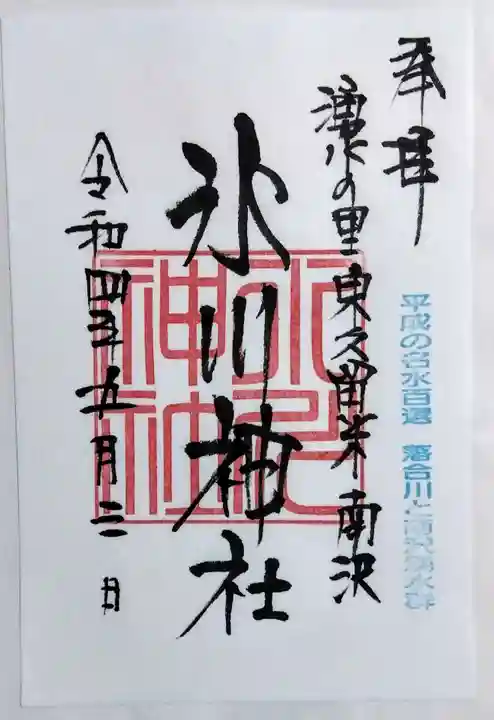 奉拝
平成の名水百選 落合川と南沢湧水群
湧水の里東久留米 南沢
氷川神社
氷川神社
令和四年五月三日